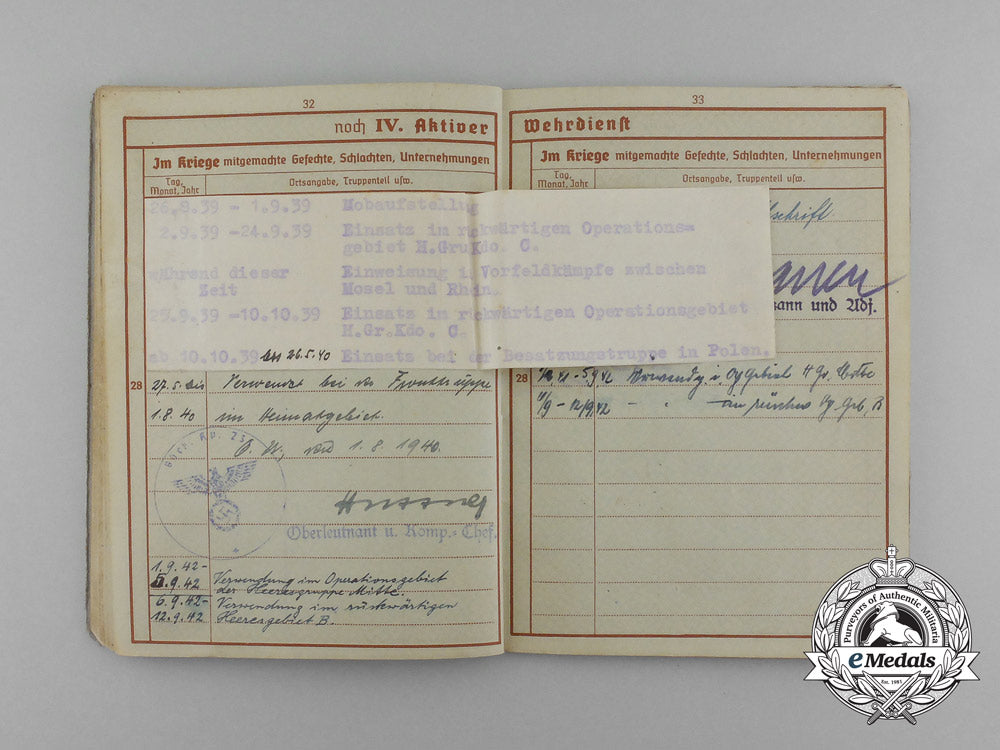 32
noch IV. Aktiver
Im Kriege mitgemachte Gefechte, Schlachten, Unternehmungen
Tag, Monat, Jahr
Ortsangabe, Truppenteil usw.
26.8.39 - 1.9.39 Mobaufstellug
2.9.39 -24.9.39 Einsatz im rückwärtigen Operations=
gebiet H.GruKdo. C.
während dieser Einweisung i. Vorfeldkämpfe zwischen
Zeit Mosel und Rhein.
25.9.39 -10.10.39 Einsatz im rückwärtigen Operationsgebiet
H.Gr.Kdo. C.
ab 10.10.39 bis 26.5.40 Einsatz bei der Besatzungstruppe in Polen.
28
27.5. bis Verwendet bei der Fronttruppe
1.8.40 im Heimatgebiet.
O. U., den 1.8.1940.
Oberleutnant u. Komp.-Chef.
1.9.42-
5.9.42 Verwendung im Operationsgebiet
der Heeresgruppe Mitte.
6.9.42- Verwendung im rückwärtigen
12.9.42 Heeresgebiet B.
33
Wehrdienst
Im Kriege mitgemachte Gefechte, Schlachten, Unternehmungen
Tag, Monat, Jahr
Ortsangabe, Truppenteil usw.
schrift
mann und Adj.
28
- 12/9 42
Purveyors of Authentic Militaria
eMedals
Est. 1981